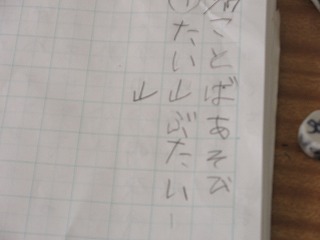 ことばあそび
たい山ぶたい
山